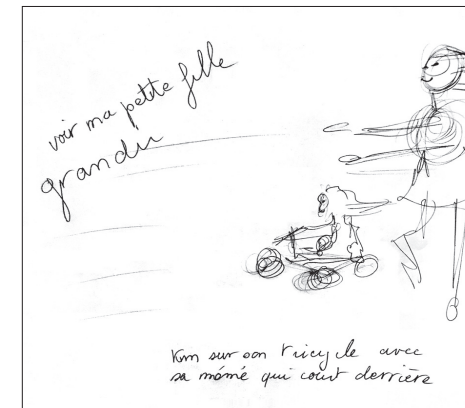 voir ma petite fille
grandir
Kim sur son tricycle avec
sa mémé qui court derrière